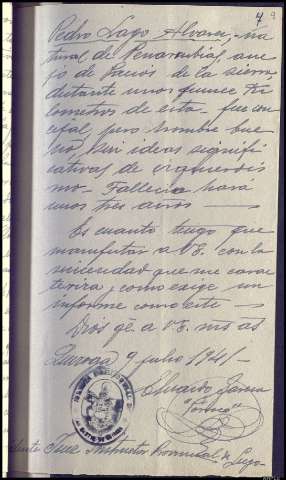 4 9
Pedro Lago Alvarez, na
tural de Penarrubia, ane
jo de Lacios de la sierra,
distante unos quince ki
lometros de esta - fue con
cejal, pero hombre bue
no, sin ideas signifi
cativas de izquierdis
mo - Fallecio hara
unos tres años
Es cuanto tengo que
manifestar a V.E. con la
sinceridad que me carac
teriza, como exige un
informe como este
Dios ge a V.E. ms as
9 julio 1941
Eduardo
Juez Instructor Provincial de Lugo